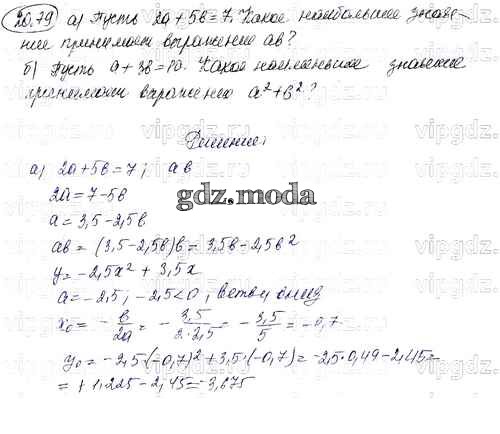 20.79 а) Пусть 2a + 5b = 7. Какое наибольшее значе-
ние принимает выражение ab?
б) Пусть a + 3b = 10. Какое наименьшее значение
принимает выражение a² + b²?
Решение:
а) 2a + 5b = 7; ab
2a = 7 - 5b
gdz.moda
a = 3,5 - 2,5b
ab = (3,5 - 2,5b)b = 3,5b - 2,5b²
y = -2,5x² + 3,5x
a = -2,5; -2,5 < 0, ветви вниз
x₀ = - b/2a = - 3,5/2·2,5 = - 3,5/5 = -0,7
y₀ = -2,5·(-0,7)² + 3,5·(-0,7) = -2,5·0,49 - 2,45 =
= +1,225 - 2,45 = -3,675